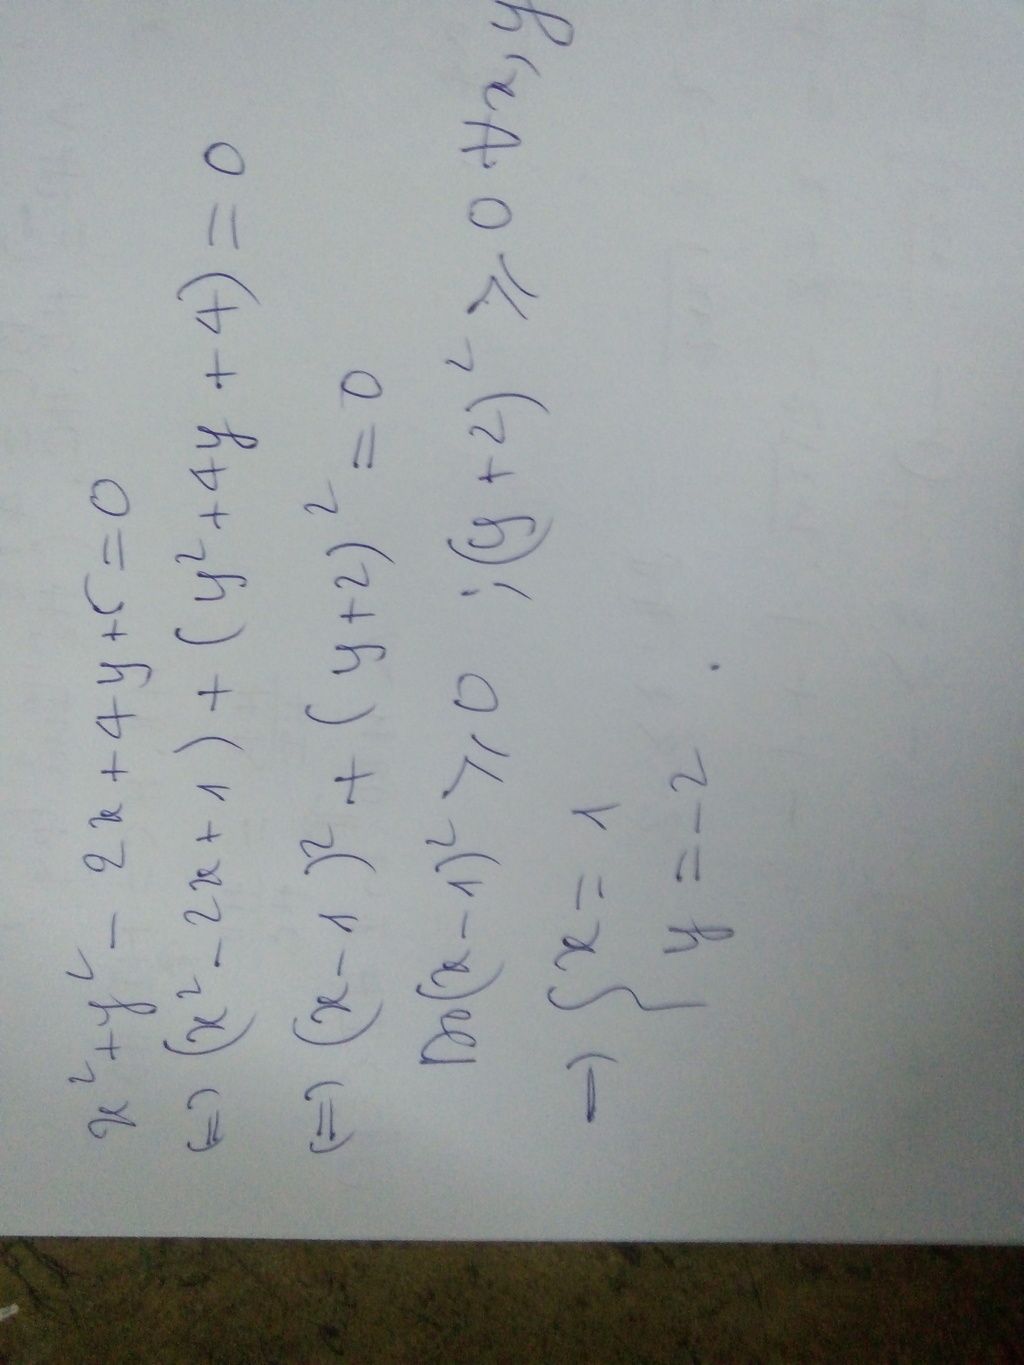 x² + y² - 2x + 4y + 5 = 0
⇔ (x² - 2x + 1) + (y² + 4y + 4) = 0
⇔ (x - 1)² + (y + 2)² = 0
Do (x - 1)² ⩾ 0 ; (y + 2)² ⩾ 0 ∀x, y
→ { x = 1
y = -2